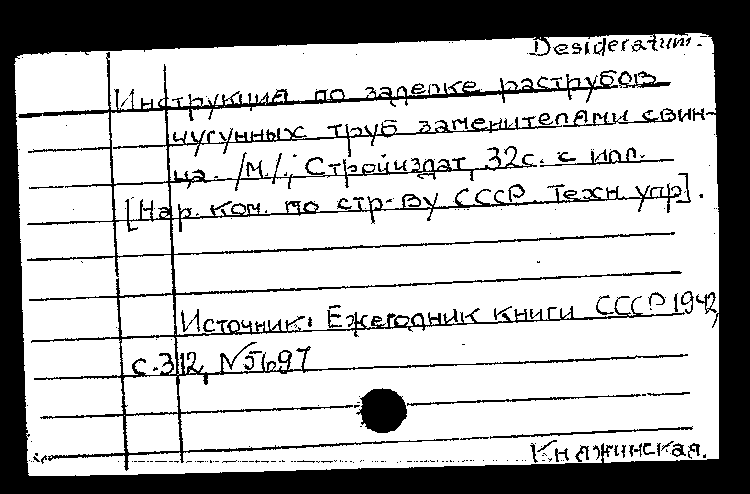 Desideratum.
Инструкция по заделке раструбов
чугунных труб заменителями свин-
ца. /М./; Стройиздат, 32с. с илл.
[Нар. ком. по стр-ву СССР. Техн. упр].
Источник: Ежегодник книги СССР 1942,
с.312, №5697
Княжинская.